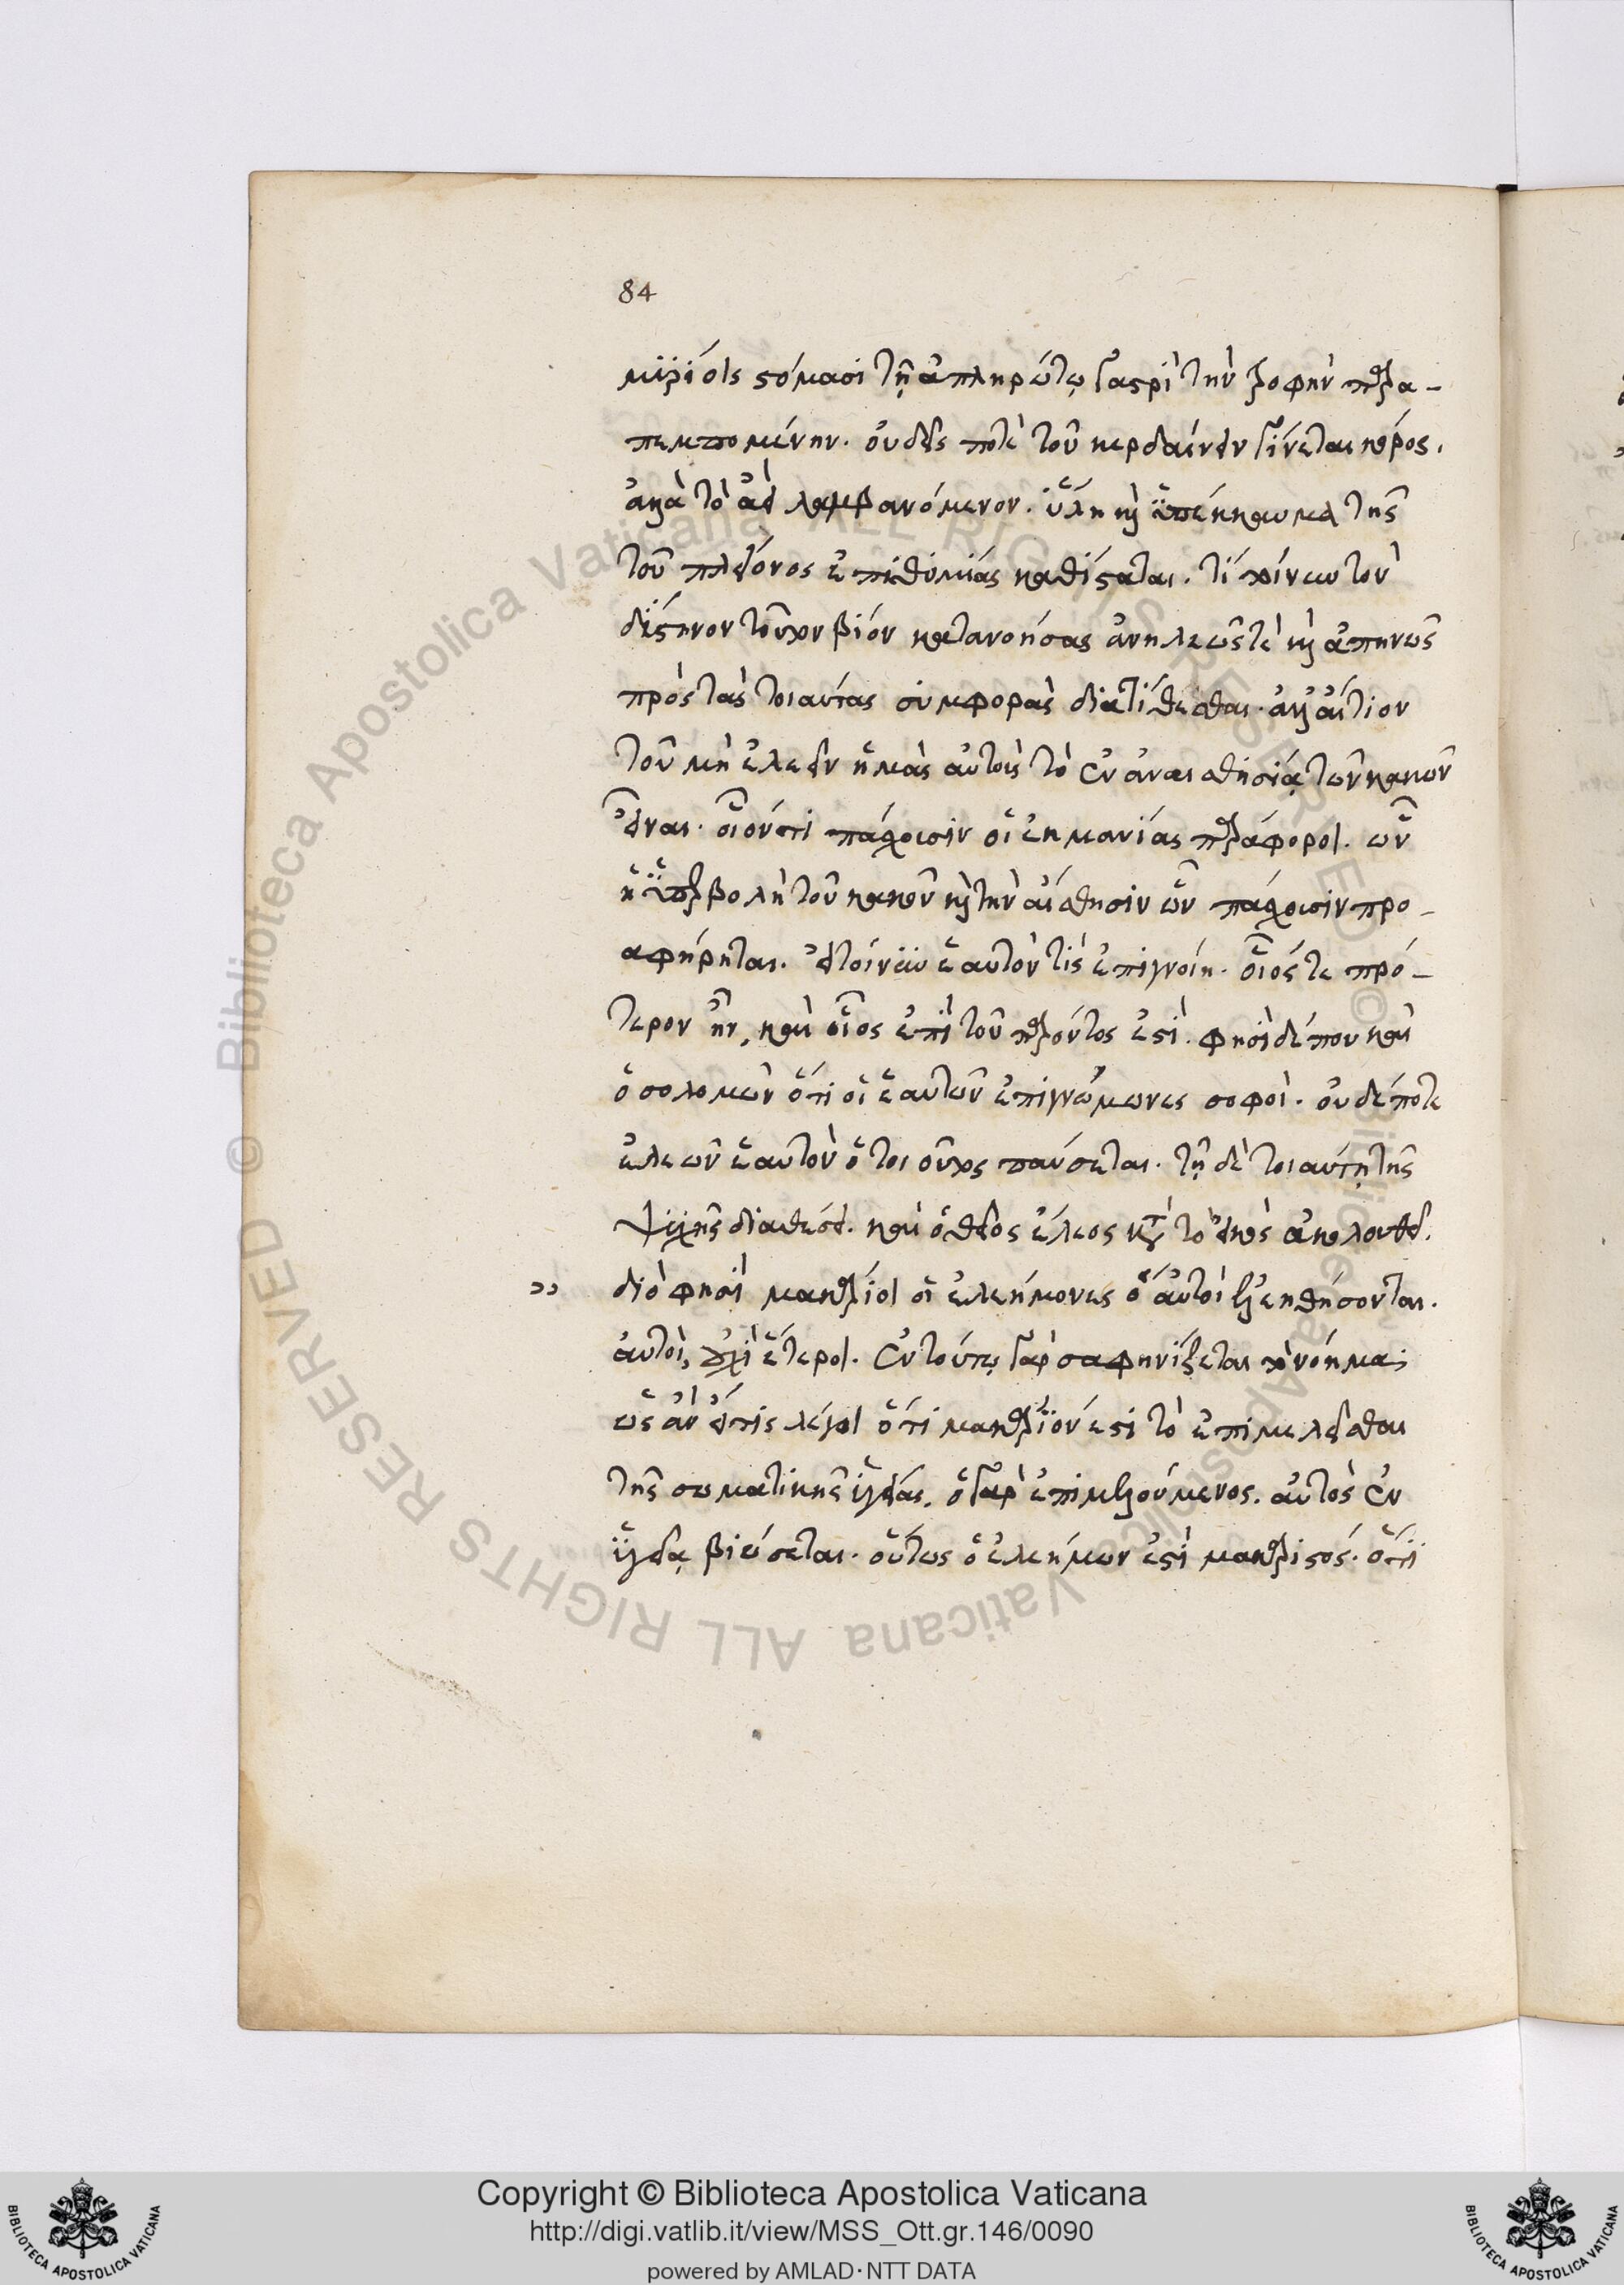 84
μυρίοις στόμασι τῇ ἀπληρώτῳ γαστρὶ τὴν τροφὴν παρα-
πεμπομένην. οὐδείς ποτε τοῦ κερδαίνειν γίνεται κόρος.
ἀλλὰ τὸ ἀεὶ λαμβανόμενον. ὕλη καὶ ὑπέκκαυμα τῆς
τοῦ πλείονος ἐπιθυμίας καθίσταται. τί τοίνυν τὸν
δύστηνον τοῦτον βίον κατανοήσας ἀνηλεῶς τὲ καὶ ἀπηνῶς
πρὸς τὰς τοιαύτας συμφορὰς διατίθεσθαι. ἀλλ' αἴτιον
τοῦ μὴ ἐλεεῖν ἡμᾶς αὐτοὺς τὸ ἐν ἀναισθησίᾳ τῶν κακῶν
εἶναι. οἷόν τι πάσχουσιν οἱ ἐκ μανίας παράφοροι. ὧν
ἡ ὑπερβολὴ τοῦ κακοῦ καὶ τὴν αἴσθησιν ὧν πάσχουσιν προ-
αφήρηται. εἰ τοίνυν ἑαυτόν τις ἐπιγνοίη. οἷός τε πρό-
τερον ἦν, καὶ οἷος ἐπὶ τοῦ παρόντος ἐστί. φησὶ δέ που καὶ
ὁ σολομῶν ὅτι οἱ ἑαυτῶν ἐπιγνώμωνες σοφοί. οὐδέποτε
ἐλεῶν ἑαυτὸν ὁ τοιοῦτος παύσεται. τῇ δὲ τοιαύτῃ τῆς
ψυχῆς διαθέσει. καὶ ὁ θεῖος ἔλεος κατὰ τὸ εἰκὸς ἀκολουθεῖ.
›› διὸ φησὶ μακάριοι οἱ ἐλεήμονες ὅτι αὐτοὶ ἐλεηθήσονται.
αὐτοὶ, οὐχὶ ἕτεροι. ἐν τούτῳ γὰρ σαφηνίζεται τὸ νόημα;
ὡς ἂν εἴ τις λέγοι ὅτι μακάριόν ἐστι τὸ ἐπιμελεῖσθαι
τῆς σωματικῆς ὑγείας. ὁ γὰρ ἐπιμελούμενος. αὐτὸς ἐν
ὑγείᾳ βιώσεται. οὕτως ὁ ἐλεήμων ἐστὶ μακαριστός. ὅτι
Copyright © Biblioteca Apostolica Vaticana
http://digi.vatlib.it/view/MSS_Ott.gr.146/0090
powered by AMLAD·NTT DATA
BIBLIOTECA APOSTOLICA VATICANA
BIBLIOTECA APOSTOLICA VATICANA
© Biblioteca Apostolica Vaticana ALL RIGHTS RESERVED
© Biblioteca Apostolica Vaticana ALL RIGHTS RESERVED